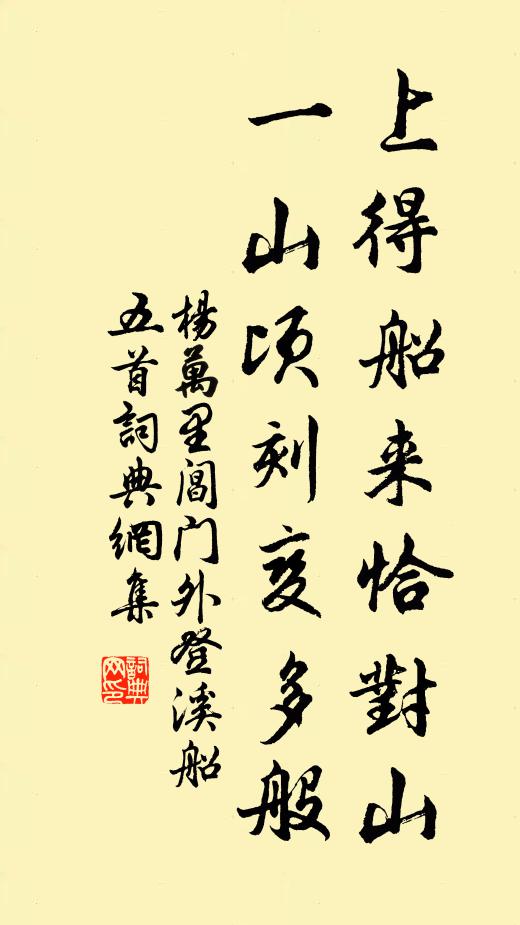 上得船来恰對山
一山頃刻变多般
楊萬里閶门外登溪船
五首詞典網集
詞典网印